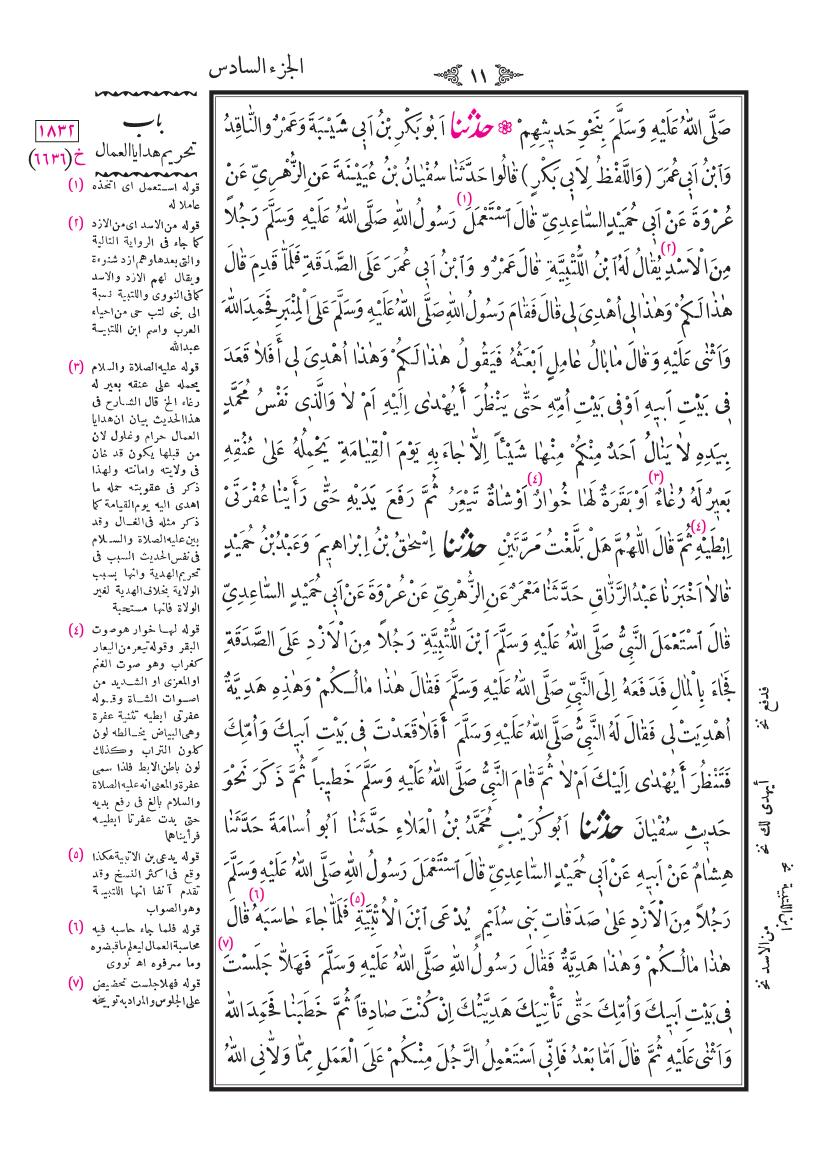 الجزء السادس
١١
صَلَّى اللهُ عَلَيْهِ وَسَلَّمَ بِنَحْوِ حَديثِهِمْ ❁ حَدَّثَنَا اَبُو بَكْرِ بْنُ اَبِي شَيْبَةَ وَعَمْرٌو النَّاقِدُ
وَابْنُ اَبِي عُمَرَ (وَاللَّفْظُ لِاَبِي بَكْرٍ) قَالُوا حَدَّثَنَا سُفْيَانُ بْنُ عُيَيْنَةَ عَنِ الزُّهْرِيِّ عَنْ
عُرْوَةَ عَنْ اَبِي حُمَيْدٍ السَّاعِدِيِّ قَالَ اسْتَعْمَلَ (١) رَسُولُ اللهِ صَلَّى اللهُ عَلَيْهِ وَسَلَّمَ رَجُلاً
مِنَ الْاَسْدِ (٢) يُقَالُ لَهُ ابْنُ اللُّتْبِيَّةِ قَالَ عَمْرٌو وَابْنُ اَبِي عُمَرَ عَلَى الصَّدَقَةِ فَلَمَّا قَدِمَ قَالَ
هٰذَا لَكُمْ وَهٰذَا لِي اُهْدِيَ لِي قَالَ فَقَامَ رَسُولُ اللهِ صَلَّى اللهُ عَلَيْهِ وَسَلَّمَ عَلَى الْمِنْبَرِ فَحَمِدَ اللهَ
وَاَثْنٰى عَلَيْهِ وَقَالَ مَا بَالُ عَامِلٍ اَبْعَثُهُ فَيَقُولُ هٰذَا لَكُمْ وَهٰذَا اُهْدِيَ لِي أَفَلاَ قَعَدَ
فِي بَيْتِ اَبِيهِ اَوْ فِي بَيْتِ اُمِّهِ حَتَّى يَنْظُرَ أَيُهْدٰى اِلَيْهِ اَمْ لاَ وَالَّذِي نَفْسُ مُحَمَّدٍ
بِيَدِهِ لاَ يَنَالُ اَحَدٌ مِنْكُمْ مِنْهَا شَيْئاً اِلاَّ جَاءَ بِهِ يَوْمَ الْقِيَامَةِ يَحْمِلُهُ عَلَى عُنُقِهِ
بَعِيرٌ لَهُ رُغَاءٌ (٣) اَوْ بَقَرَةٌ لَهَا خُوَارٌ (٤) اَوْ شَاةٌ تَيْعَرُ ثُمَّ رَفَعَ يَدَيْهِ حَتَّى رَأَيْنَا عُفْرَتَيْ
اِبْطَيْهِ (٤) ثُمَّ قَالَ اللّٰهُمَّ هَلْ بَلَّغْتُ مَرَّتَيْنِ حَدَّثَنَا اِسْحٰقُ بْنُ اِبْرَاهِيمَ وَعَبْدُ بْنُ حُمَيْدٍ
قَالاَ اَخْبَرَنَا عَبْدُ الرَّزَّاقِ حَدَّثَنَا مَعْمَرٌ عَنِ الزُّهْرِيِّ عَنْ عُرْوَةَ عَنْ اَبِي حُمَيْدٍ السَّاعِدِيِّ
قَالَ اسْتَعْمَلَ النَّبِيُّ صَلَّى اللهُ عَلَيْهِ وَسَلَّمَ ابْنَ اللُّتْبِيَّةِ رَجُلاً مِنَ الْاَزْدِ عَلَى الصَّدَقَةِ
فَجَاءَ بِالْمَالِ فَدَفَعَهُ اِلَى النَّبِيِّ صَلَّى اللهُ عَلَيْهِ وَسَلَّمَ فَقَالَ هٰذَا مَالُكُمْ وَهٰذِهِ هَدِيَّةٌ
اُهْدِيَتْ لِي فَقَالَ لَهُ النَّبِيُّ صَلَّى اللهُ عَلَيْهِ وَسَلَّمَ أَفَلاَ قَعَدْتَ فِي بَيْتِ اَبِيكَ وَاُمِّكَ
فَتَنْظُرَ أَيُهْدٰى اِلَيْكَ اَمْ لاَ ثُمَّ قَامَ النَّبِيُّ صَلَّى اللهُ عَلَيْهِ وَسَلَّمَ خَطِيباً ثُمَّ ذَكَرَ نَحْوَ
حَدِيثِ سُفْيَانَ حَدَّثَنَا اَبُو كُرَيْبٍ مُحَمَّدُ بْنُ الْعَلَاءِ حَدَّثَنَا اَبُو اُسَامَةَ حَدَّثَنَا
هِشَامٌ عَنْ اَبِيهِ عَنْ اَبِي حُمَيْدٍ السَّاعِدِيِّ قَالَ اسْتَعْمَلَ رَسُولُ اللهِ صَلَّى اللهُ عَلَيْهِ وَسَلَّمَ
رَجُلاً مِنَ الْاَزْدِ عَلَى صَدَقَاتِ بَنِي سُلَيْمٍ يُدْعَى ابْنَ الْاُتْبِيَّةِ (٥) فَلَمَّا جَاءَ حَاسَبَهُ (٦) قَالَ
هٰذَا مَالُكُمْ وَهٰذَا هَدِيَّةٌ فَقَالَ رَسُولُ اللهِ صَلَّى اللهُ عَلَيْهِ وَسَلَّمَ فَهَلاَّ جَلَسْتَ (٧)
فِي بَيْتِ اَبِيكَ وَاُمِّكَ حَتَّى تَأْتِيَكَ هَدِيَّتُكَ اِنْ كُنْتَ صَادِقاً ثُمَّ خَطَبَنَا فَحَمِدَ اللهَ
وَاَثْنٰى عَلَيْهِ ثُمَّ قَالَ اَمَّا بَعْدُ فَاِنِّي اَسْتَعْمِلُ الرَّجُلَ مِنْكُمْ عَلَى الْعَمَلِ مِمَّا وَلاَّنِي اللهُ
باب
تحريم هدايا العمال
١٨٣٢
خ (٦٦٣٦)
(١) قوله استعمل اى اتخذه
عاملا له
(٢) قوله من الاسد اى من الازد
كما جاء فى الرواية التالية
والتى بعدها وهم ازد شنوءة
ويقال لهم الازد والاسد
كما فى النووى واللتبية نسبة
الى بنى لتب حى من احياء
العرب واسم ابن اللتبية
عبدالله
(٣) قوله عليه الصلاة والسلام
يحمله على عنقه بعير له
رغاء الخ قال الشارح فى
هذا الحديث بيان ان هدايا
العمال حرام وغلول لان
من قبلها يكون قد خان
فى ولايته وامانته ولهذا
ذكر فى عقوبته حمله ما
اهدى اليه يوم القيامة كما
ذكر مثله فى الغال وقد
بين عليه الصلاة والسلام
فى نفس الحديث السبب فى
تحريم الهدية وانها بسبب
الولاية بخلاف الهدية لغير
الولاة فانها مستحبة
(٤) قوله لها خوار هو صوت
البقر وقوله تيعر من اليعار
كغراب وهو صوت الغنم
او المعزى او الشديد من
اصوات الشاة وقوله
عفرتى ابطيه تثنية عفرة
وهى البياض يخالطه لون
كلون التراب وكذلك
لون باطن الابط فلذا سمى
عفرة والمعنى انه عليه الصلاة
والسلام بالغ فى رفع يديه
حتى بدت عفرتا ابطيه
فرأيناها
(٥) قوله يدعى بن الاتبية هكذا
وقع فى اكثر النسخ وقد
تقدم آنفا انها اللتبية
وهو الصواب
(٦) قوله فلما جاء حاسبه فيه
محاسبة العمال ليعلم ما قبضوه
وما صرفوه اه نووى
(٧) قوله فهلا جلست تحضيض
على الجلوس والمراد به توبيخه
فدفع نخ
أيهدى لك نخ
من الاسد نخ
ابن اللتبية نخ